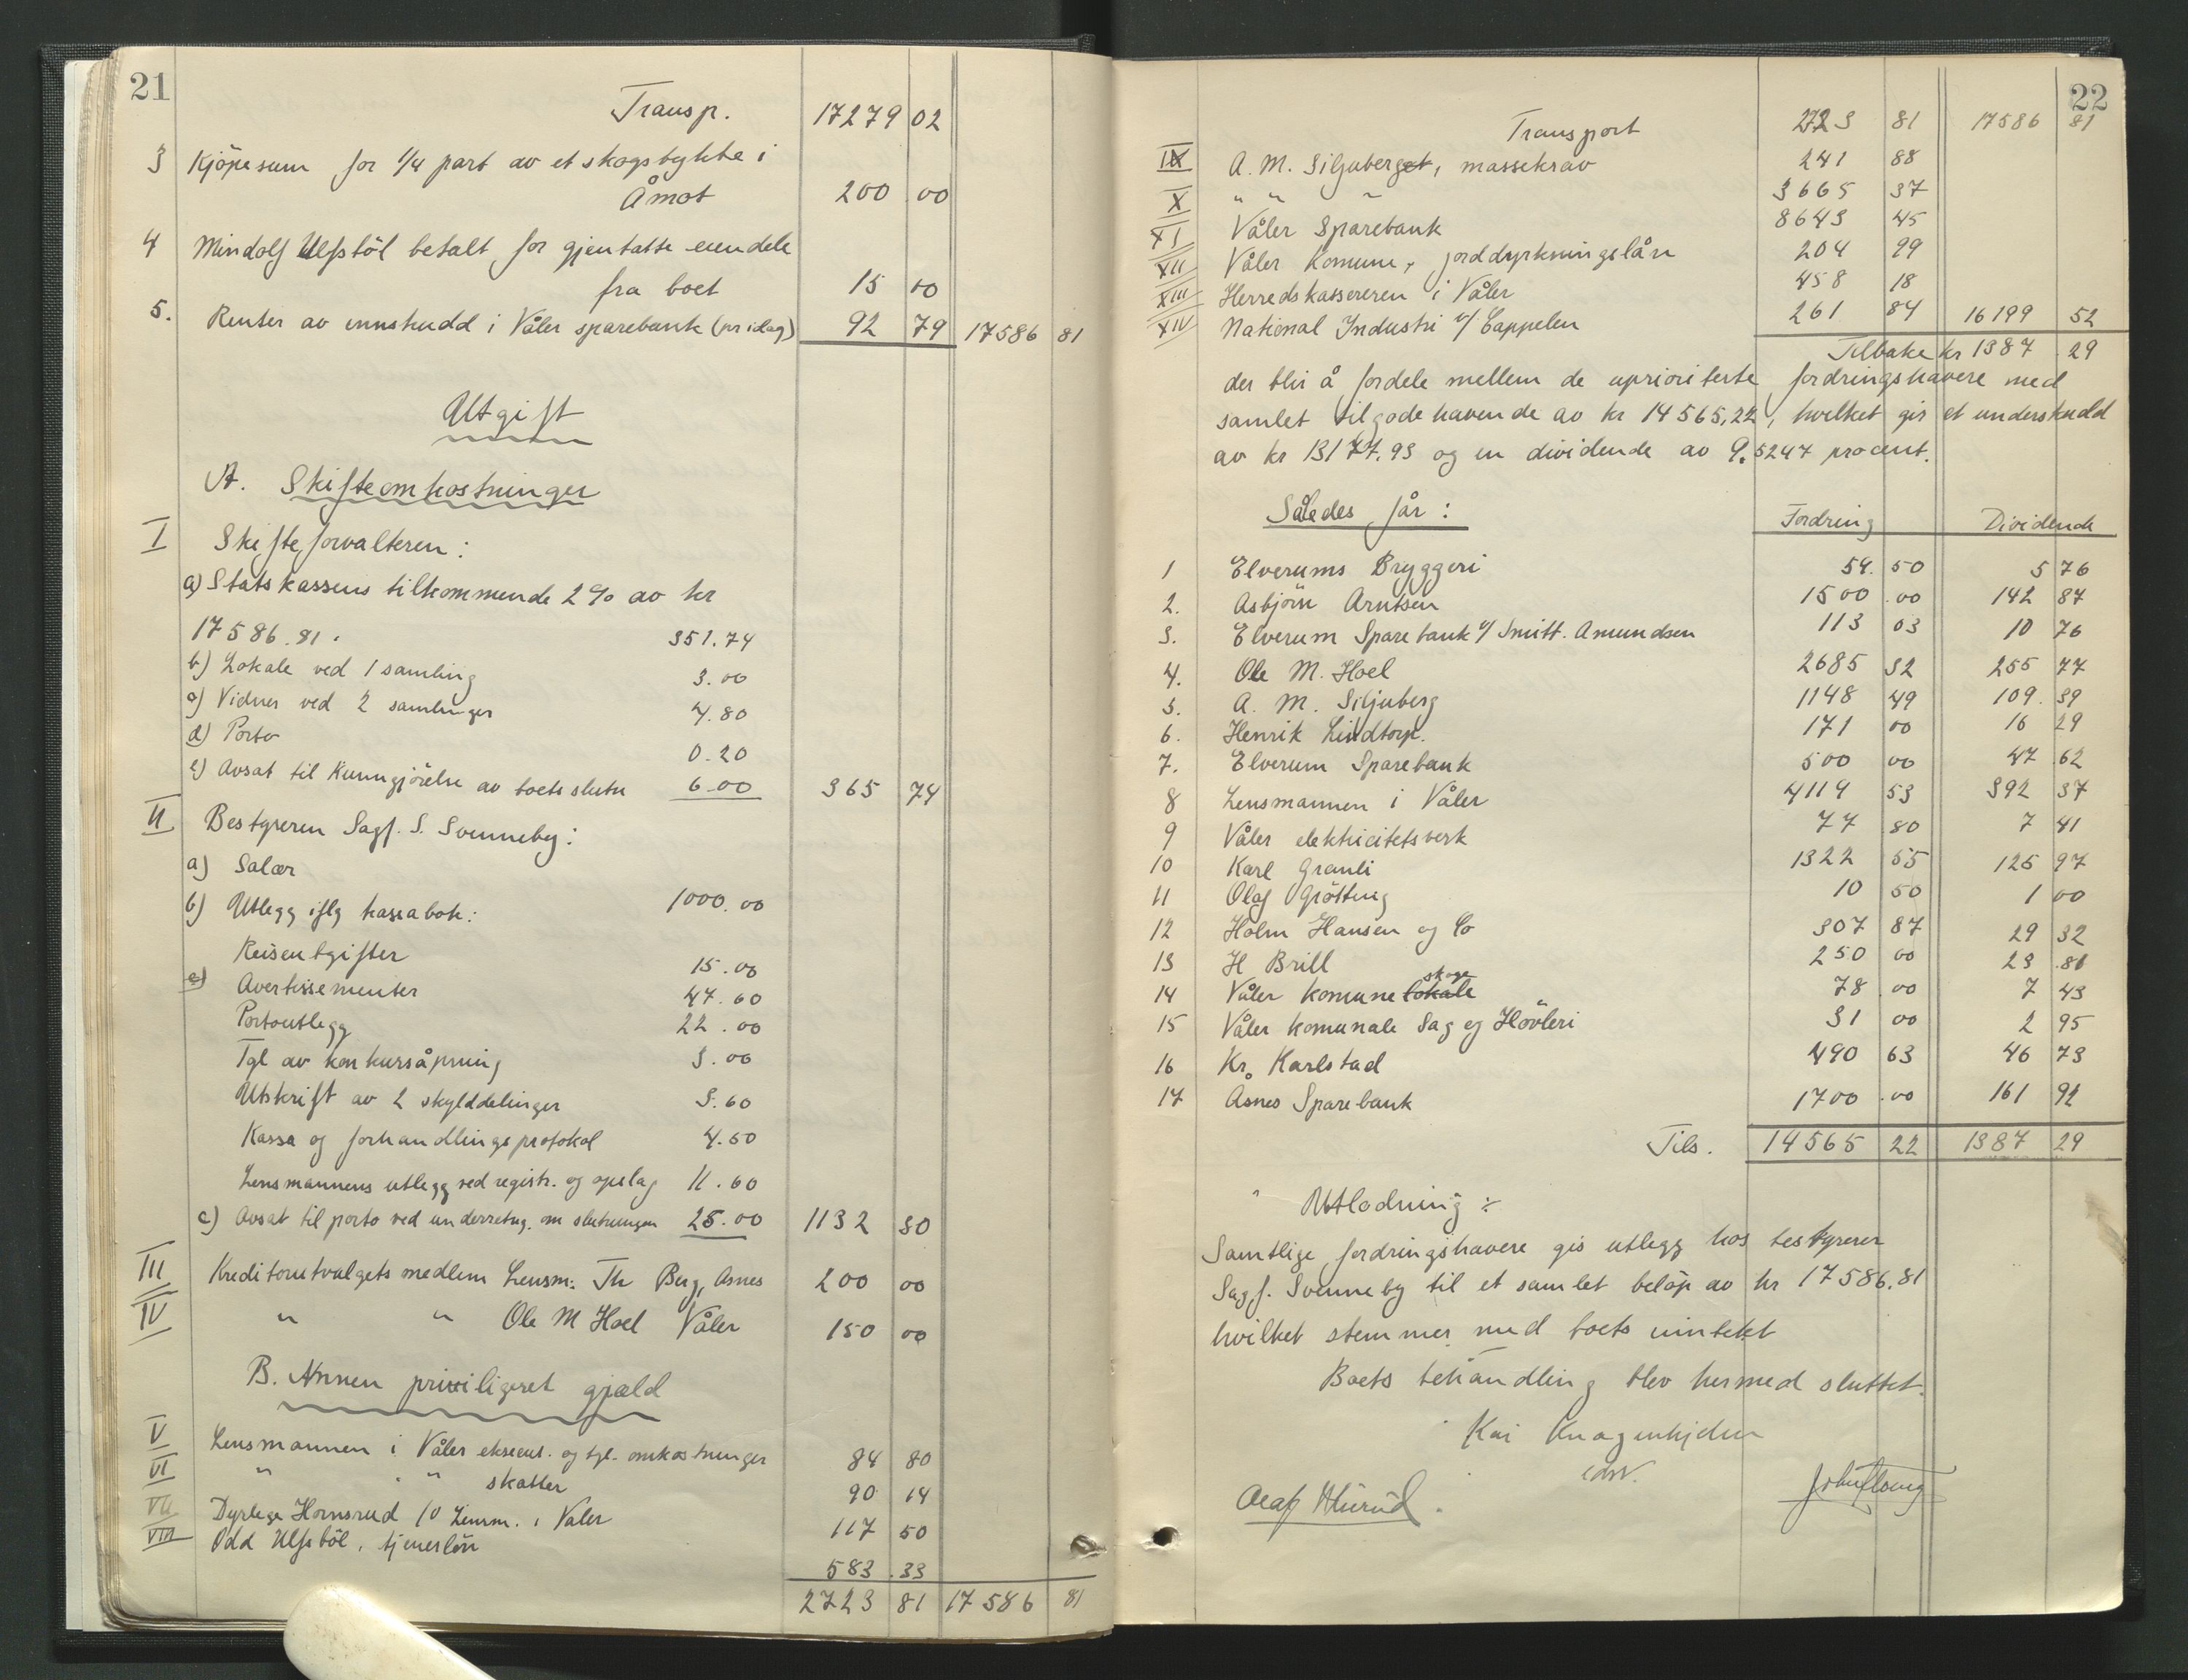 21
Transp. 17279 02
3 Kjöpesum for 1/4 part av et skogstykke i
Åmot 200 00
4 Mindolf Ulfsböl betalt for gjentatte eiendele
fra boet 15 00
5. Renter av innskudd i Våler sparebank (pr idag) 92 79 17586 81
Utgift
A. Skifteomkostninger
I Skifteforvalteren:
a) Statskassens tilkommende 2% av kr
17586.81. 351.74
b) Lokale ved 1 samling 3.00
c) Vidner ved 2 samlinger 4.80
d) Porto 0.20
e) Avsat til Kunngjörelse av boets slutn 6.00 365 74
II Bestyreren Sagf. S. Svenneby:
a) Salær 1000.00
b) Utlegg iflg kassabok:
Reiseutgifter 15.00
c) Avertissementer 47.60
Portoutlegg 22.00
Tgl av konkursåpning 3.00
Utskrift av 2 skylddelinger 3.60
Kassa og forhandlingsprotokol 4.50
Lensmannens utlegg ved registr. og opslag 11.60
c) Avsat til porto ved underretng. om slutningen 25.00 1132 30
III Kreditorutvalgets medlem Lensm. Th Berg, Åsnes 200 00
IV " " Ole M Hoel Våler 150 00
B. Annen priviligeret gjæld
V Lensmannen i Våler eksecut. og tgl. omkostninger 84 80
VI " " " skatter 90 14
VII Dyrlege Hornsrud c/o Lensm. i Våler 117 50
VIII Odd Ulfsböl, tjenerlön 583.33
2723 81 17586 81
22
Transport 2723 81 17586 81
IX A. M. Siljuberget, massekrav 241 88
X " " " 3665 37
XI Våler Sparebank 8643 45
XII Våler Komune, jorddyrkningslån 204 99
XIII Herredskassereren i Våler 458 18
XIV National Industri v/ Cappelen 261 84 16199 52
Tilbake kr 1387.29
der blir å fordele mellem de uprioriterte fordringshavere med
samlet tilgodehavende av kr 14565,22, hvilket gir et underskudd
av kr 13177.93 og en dividende av 9.5247 procent.
Således får: Fordring Dividende
1 Elverums Bryggeri 54.50 5 76
2. Asbjörn Arntsen 1500.00 142 87
3. Elverum Sparebank v/ Smitt. Amundsen 113 03 10 76
4. Ole M. Hoel 2685 32 255 77
5. A. M. Siljuberg 1148 49 109.39
6. Henrik Lindtorp. 171 00 16 29
7. Elverum Sparebank 500 00 47 62
8 Lensmannen i Våler 4119 53 392 37
9 Våler elektricitetsverk 77 80 7 41
10 Karl Granli 1322 55 125 97
11 Olaf Gröttung 10 50 1 00
12 Holm Hansen og Co 307 87 29 32
13 H Brill 250 00 23.81
14 Våler komune lokale skoge 78.00 7 43
15 Våler komunale Sag og Hövleri 31 00 2 95
16 Kr. Karlstad 490 63 46 73
17 Åsnes Sparebank 1700.00 161 92
Tils. 14565 22 1387 29
Utlodning:
Samtlige fordringshavere gis utlegg hos bestyrerer
Sagf. Svenneby til et samlet belöp av kr 17586.81
hvilket stemmer med boets inntekt
Boets behandling blev hermed sluttet.
Kai Knagenhjelm
cdsv.